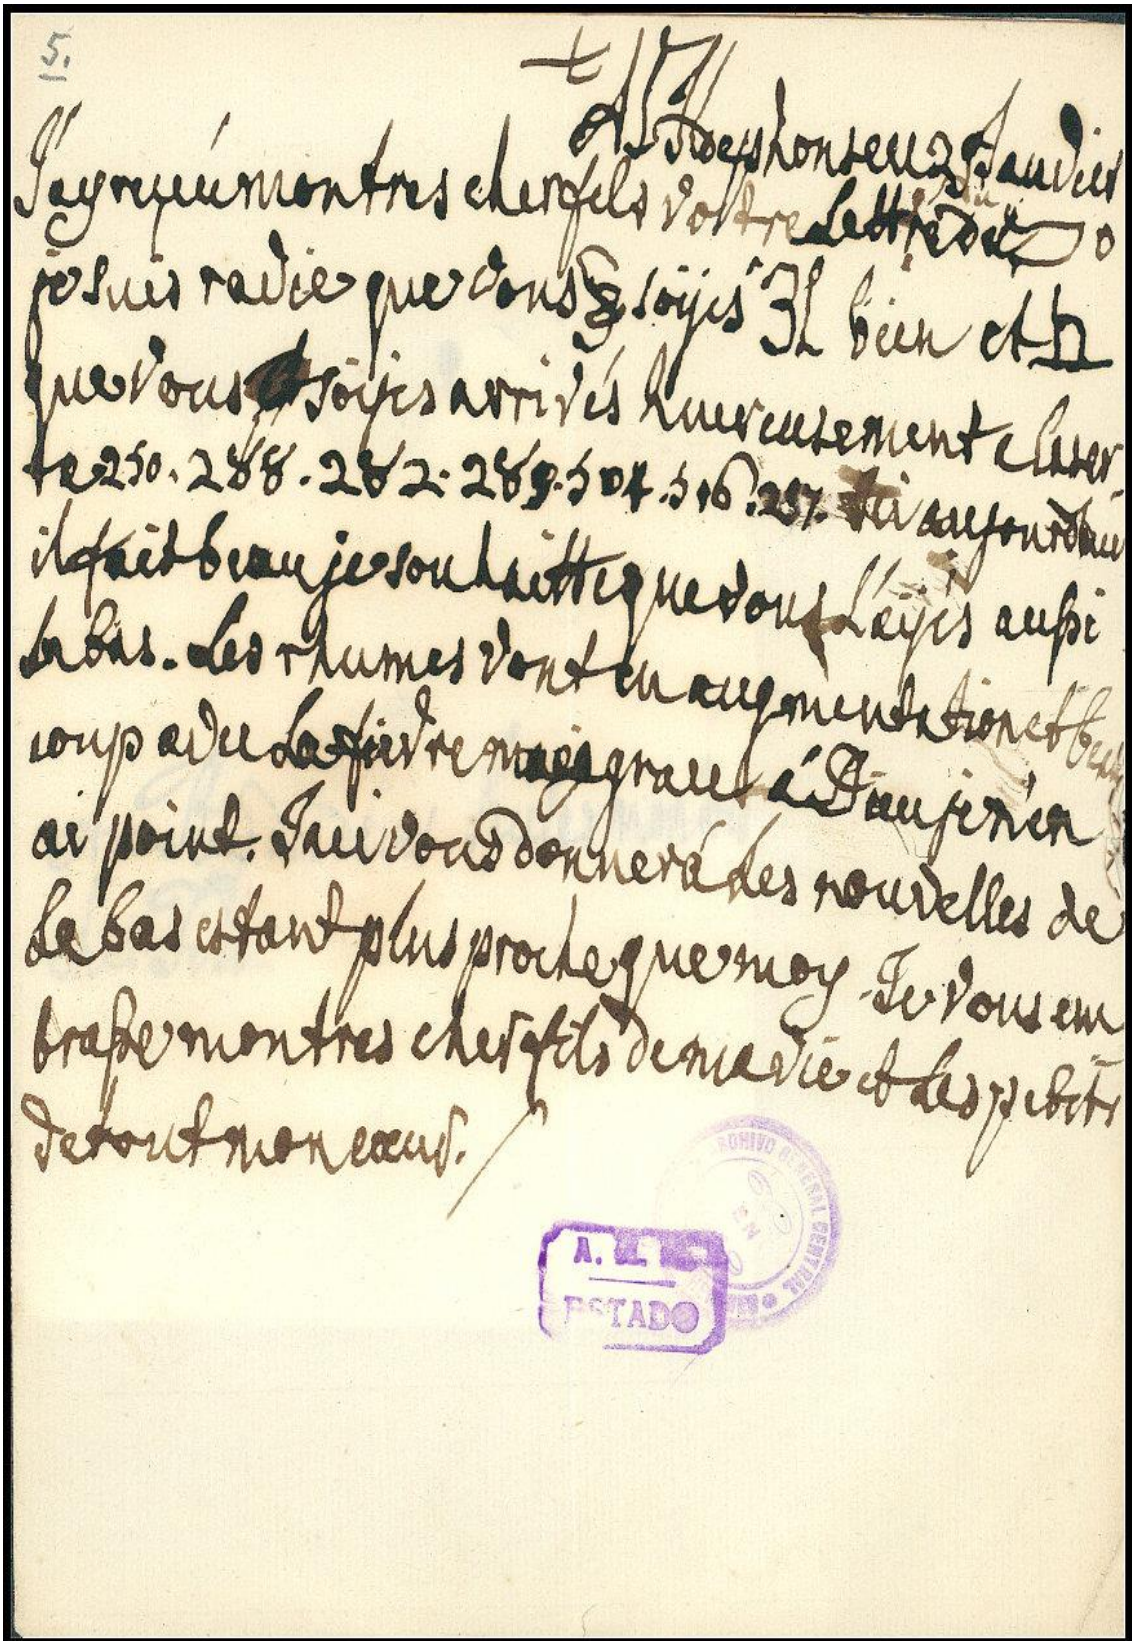 5.
A St Ildephonse ce 23 Janvier
J'ay reçeu mon tres cher fils vostre Lettre du 20
je suis ravie que vous soijés bien et
que vous soijés arrivés hureusement
250. 288. 282. 289. 504. 516. 257. aujourdhui
il fait beau je souhaitte que vous L'aÿés aussi
La bas. Les rhumes vont en augmentation et beau
coup avec La fievre grace á Dieu je n'en
ai point. vous donnerá des nouvelles de
La bas estant plus proche que moy. Je vous em
brasse mon tres cher fils de ma vie et Les petits
de tout mon cœur.
A.
ESTADO
ARCHIVO GENERAL CENTRAL